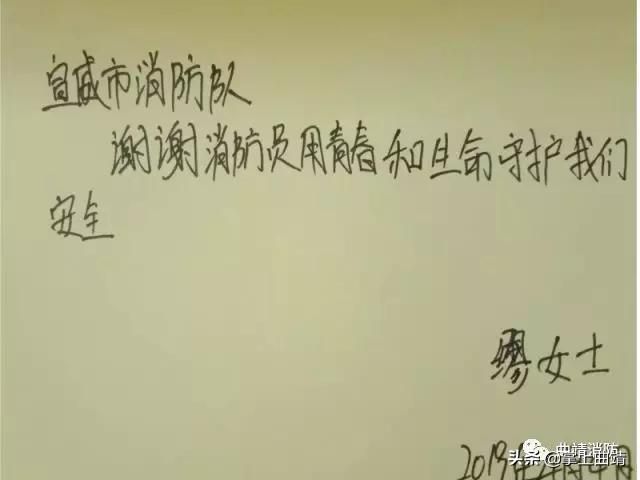 宣威市消防队
谢谢消防员用青春和生命守护我们
安全
缪女士
曲靖消防
头条@掌上曲靖